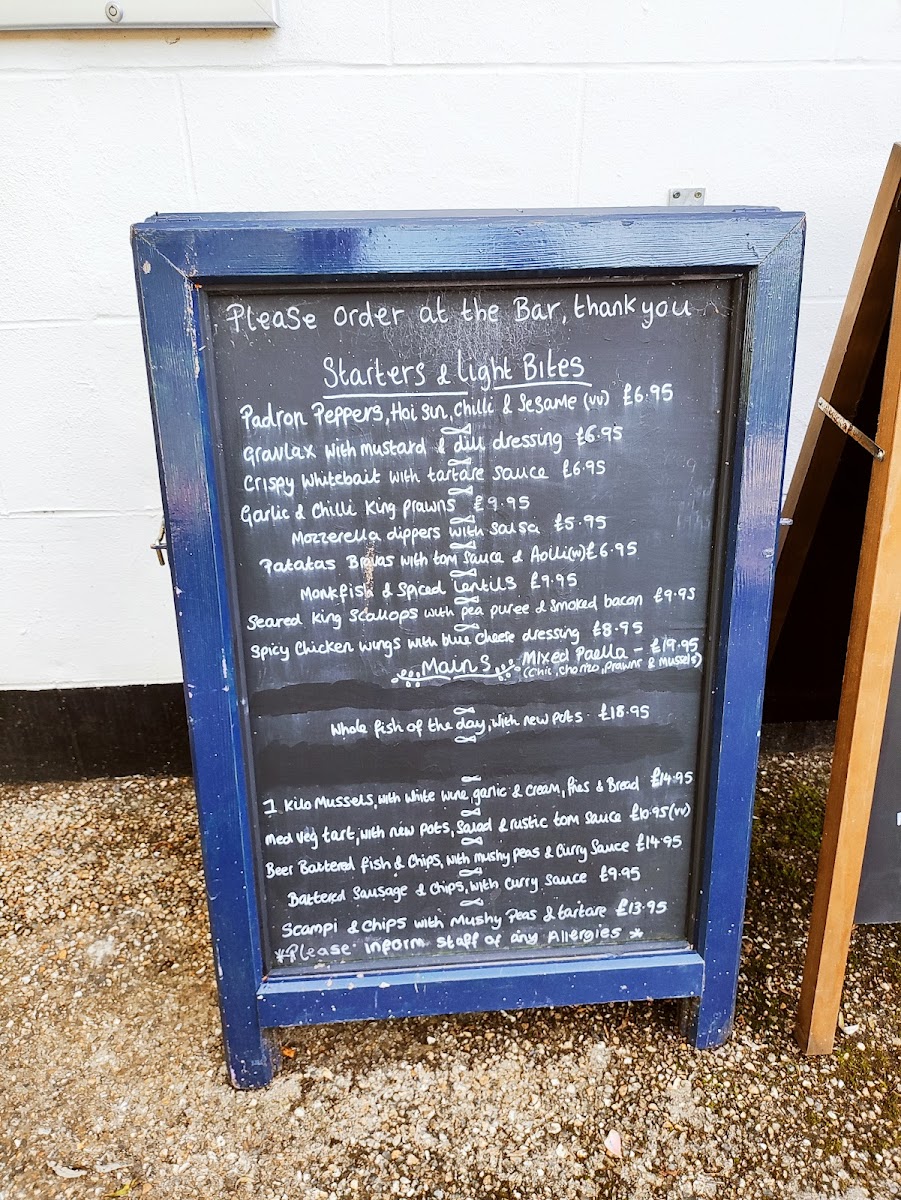 Please order at the Bar, thank you
Starters & Light Bites
Padron Peppers, Hoi sun, chilli & Sesame (vv) £6.95
Gravlax with mustard & dill dressing £6.95
Crispy Whitebait with tartare sauce £6.95
Garlic & Chilli King prawns £9.95
Mozzerella dippers with Salsa £5.95
Patatas Bravas with tom sauce & Aolli(vv) £6.95
Monkfish & Spiced Lentils £9.95
Seared King Scallops with pea puree & smoked bacon £9.95
Spicy Chicken wings with blue cheese dressing £8.95
Mains Mixed Paella - £19.95
(Chic, chorizo, prawns & mussels)
Whole fish of the day, with new pots £18.95
1 Kilo Mussels, with white wine, garlic & cream, fries & Bread £14.95
Med Veg tart, with new pots, Salad & rustic tom sauce £10.95 (vv)
Beer Battered fish & Chips, with mushy peas & Curry Sauce £14.95
Battered Sausage & Chips, with Curry sauce £9.95
Scampi & Chips with Mushy Peas & tartare £13.95
*Please inform staff of any Allergies *